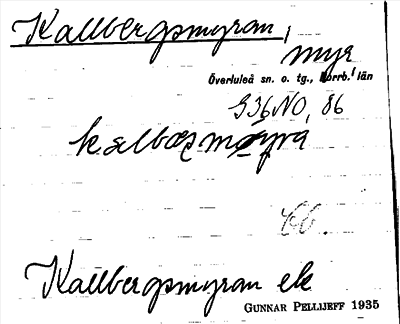 Kallbergsmyran,
myr
Överluleå sn. o. tg., Norrb. län
G36NO, 86
Kallbergsmyran ek
GUNNAR PELLIJEFF 1935